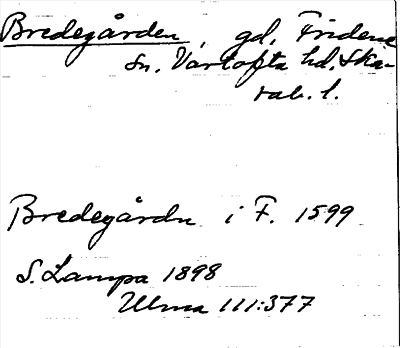 Bredegården, gd, Fridene
sn. Vartofta hd, Ska-
rab. l.
Bredegårdn i F. 1599
S. Lampa 1898
Ulma 111:377